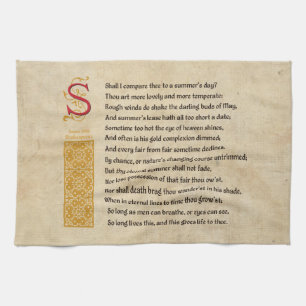 S
Shall I compare thee to a summer's day?
Thou art more lovely and more temperate:
Rough winds do shake the darling buds of May,
And summer's lease hath all too short a date:
Sometime too hot the eye of heaven shines,
And often is his gold complexion dimmed;
And every fair from fair sometime declines,
By chance, or nature's changing course untrimmed;
But thy eternal summer shall not fade,
Nor lose possession of that fair thou ow'st,
Nor shall death brag thou wander'st in his shade,
When in eternal lines to time thou grow'st;
So long as men can breathe, or eyes can see,
So long lives this, and this gives life to thee.